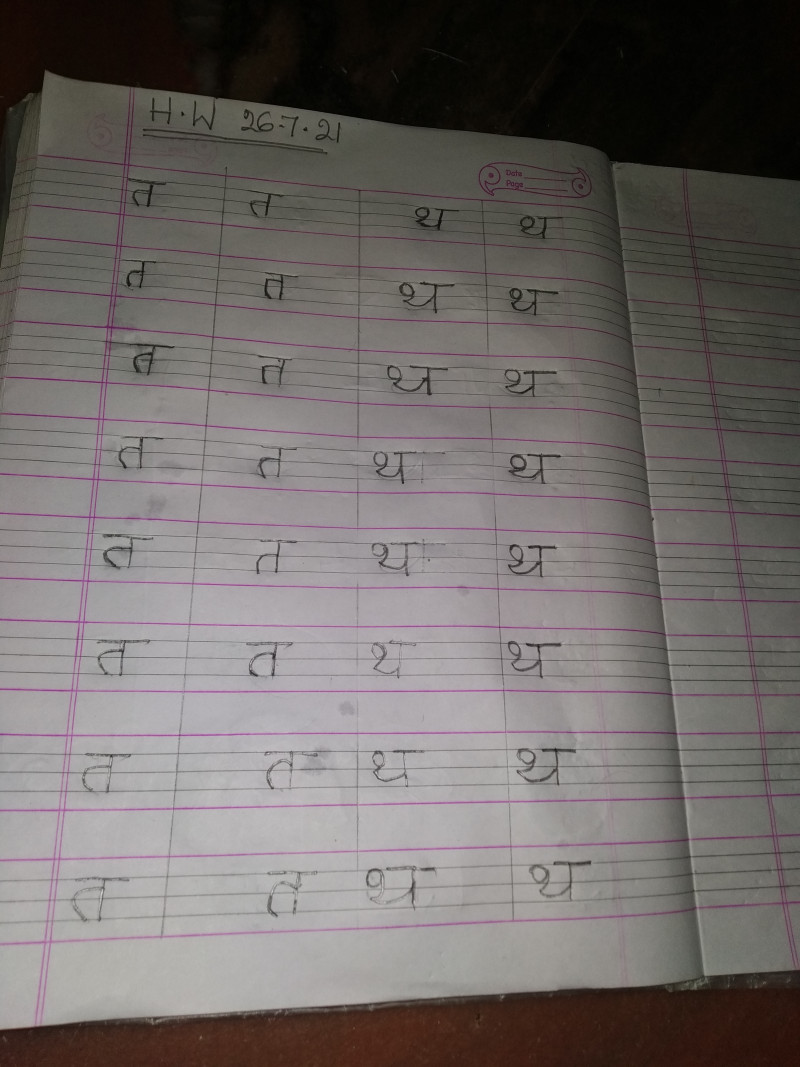 H.W 26.7.21
Date
Page
त त थ थ
त त थ थ
त त थ थ
त त थ थ
त त थ थ
त त थ थ
त त थ थ
त त थ थ